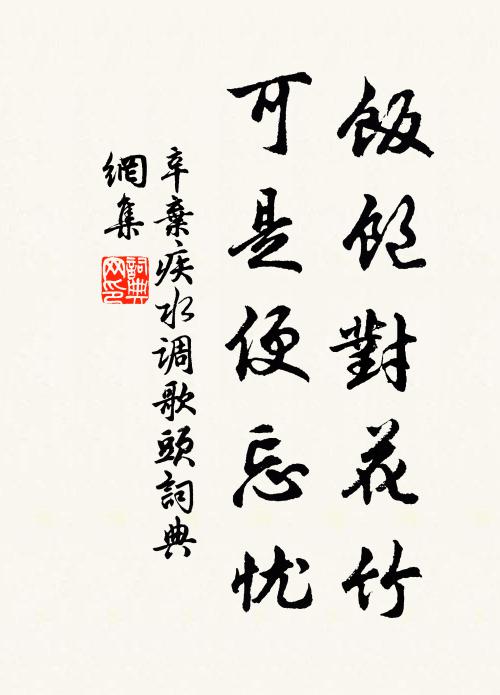 飯飽對花竹
可是便忘忧
辛棄疾水调歌頭詞典
網集
詞典網印